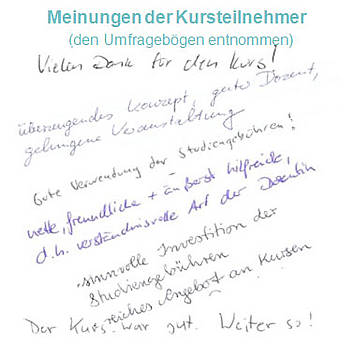 Meinungen der Kursteilnehmer
(den Umfragebögen entnommen)
Vielen Dank für den Kurs!
überzeugendes Konzept, guter Dozent,
gelungene Veranstaltung
Gute Verwendung der Studiengebühren!
nette, freundliche + äußerst hilfreiche,
d.h. verständnisvolle Art der Dozentin
-sinnvolle Investition der
Studiengebühren
reiches Angebot an Kursen
Der Kurs war gut. Weiter so!